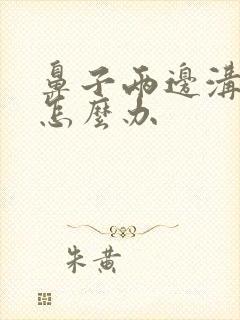 鼻子兩邊溝
怎麼办
朱黄